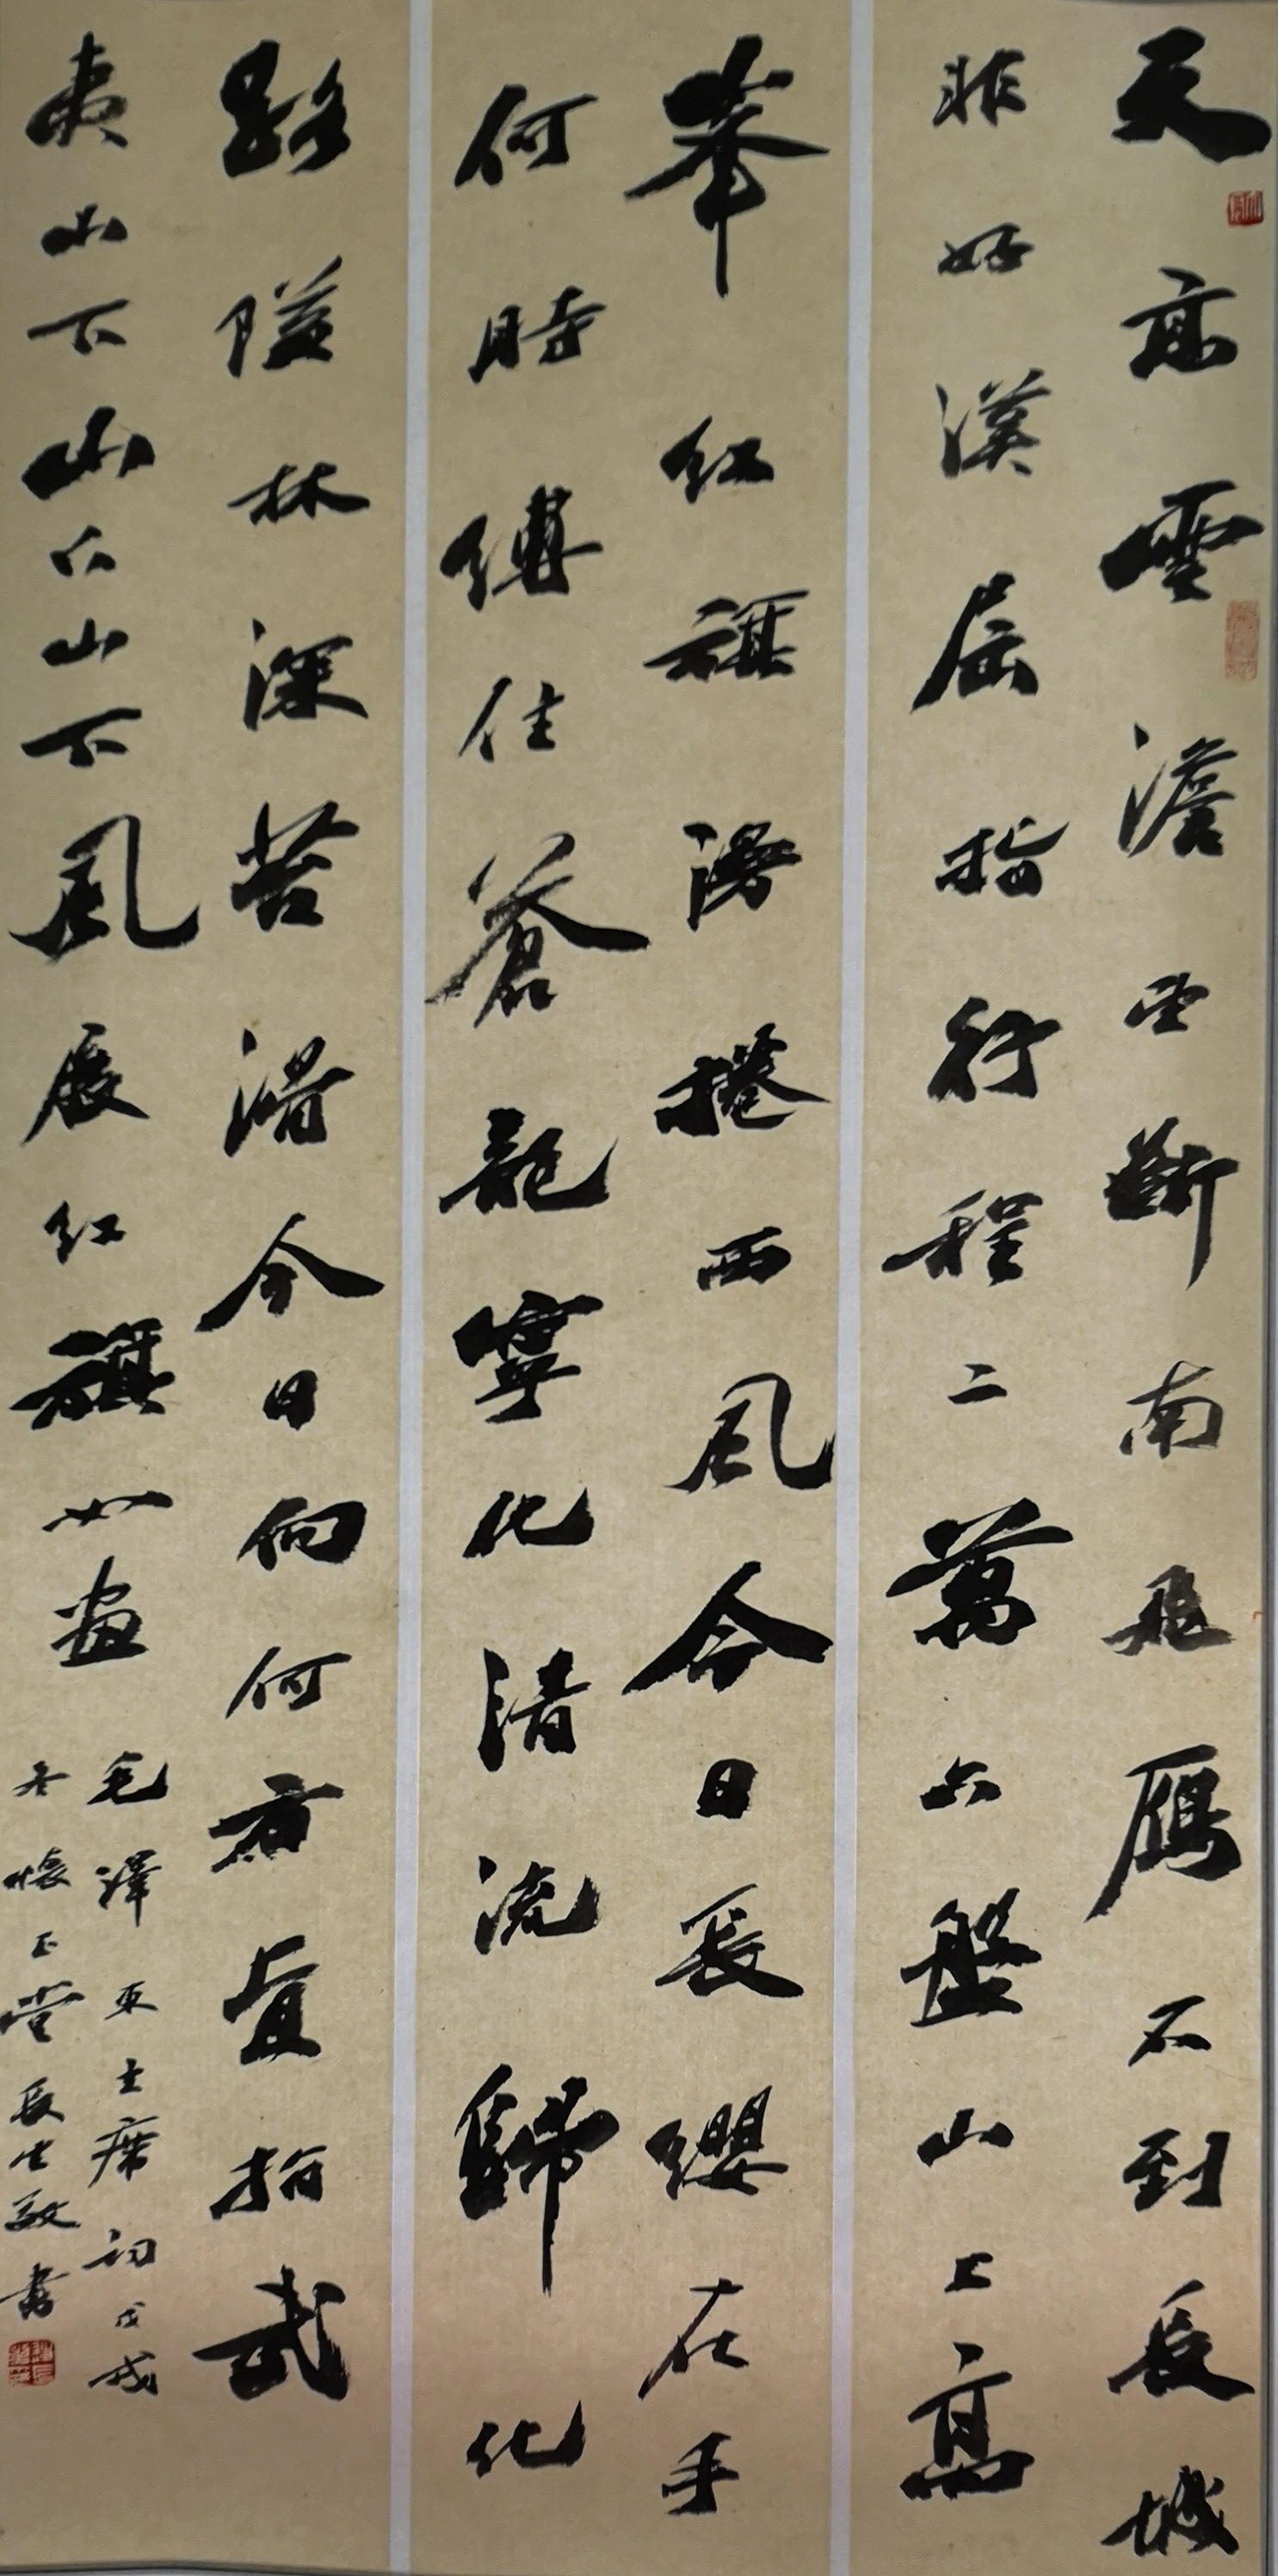 天高雲澹望斷南飛鴈不到長城
非好漢屈指行程二萬六盤山上高
峯紅旗漫捲西風今日長纓在手
何時縛住蒼龍寧化清流歸化
路隘林深苔滑今日向何方直指武
夷山下山下山下風展紅旗如畫
毛澤東主席詞戊戌
冬懷玉堂長生敬書